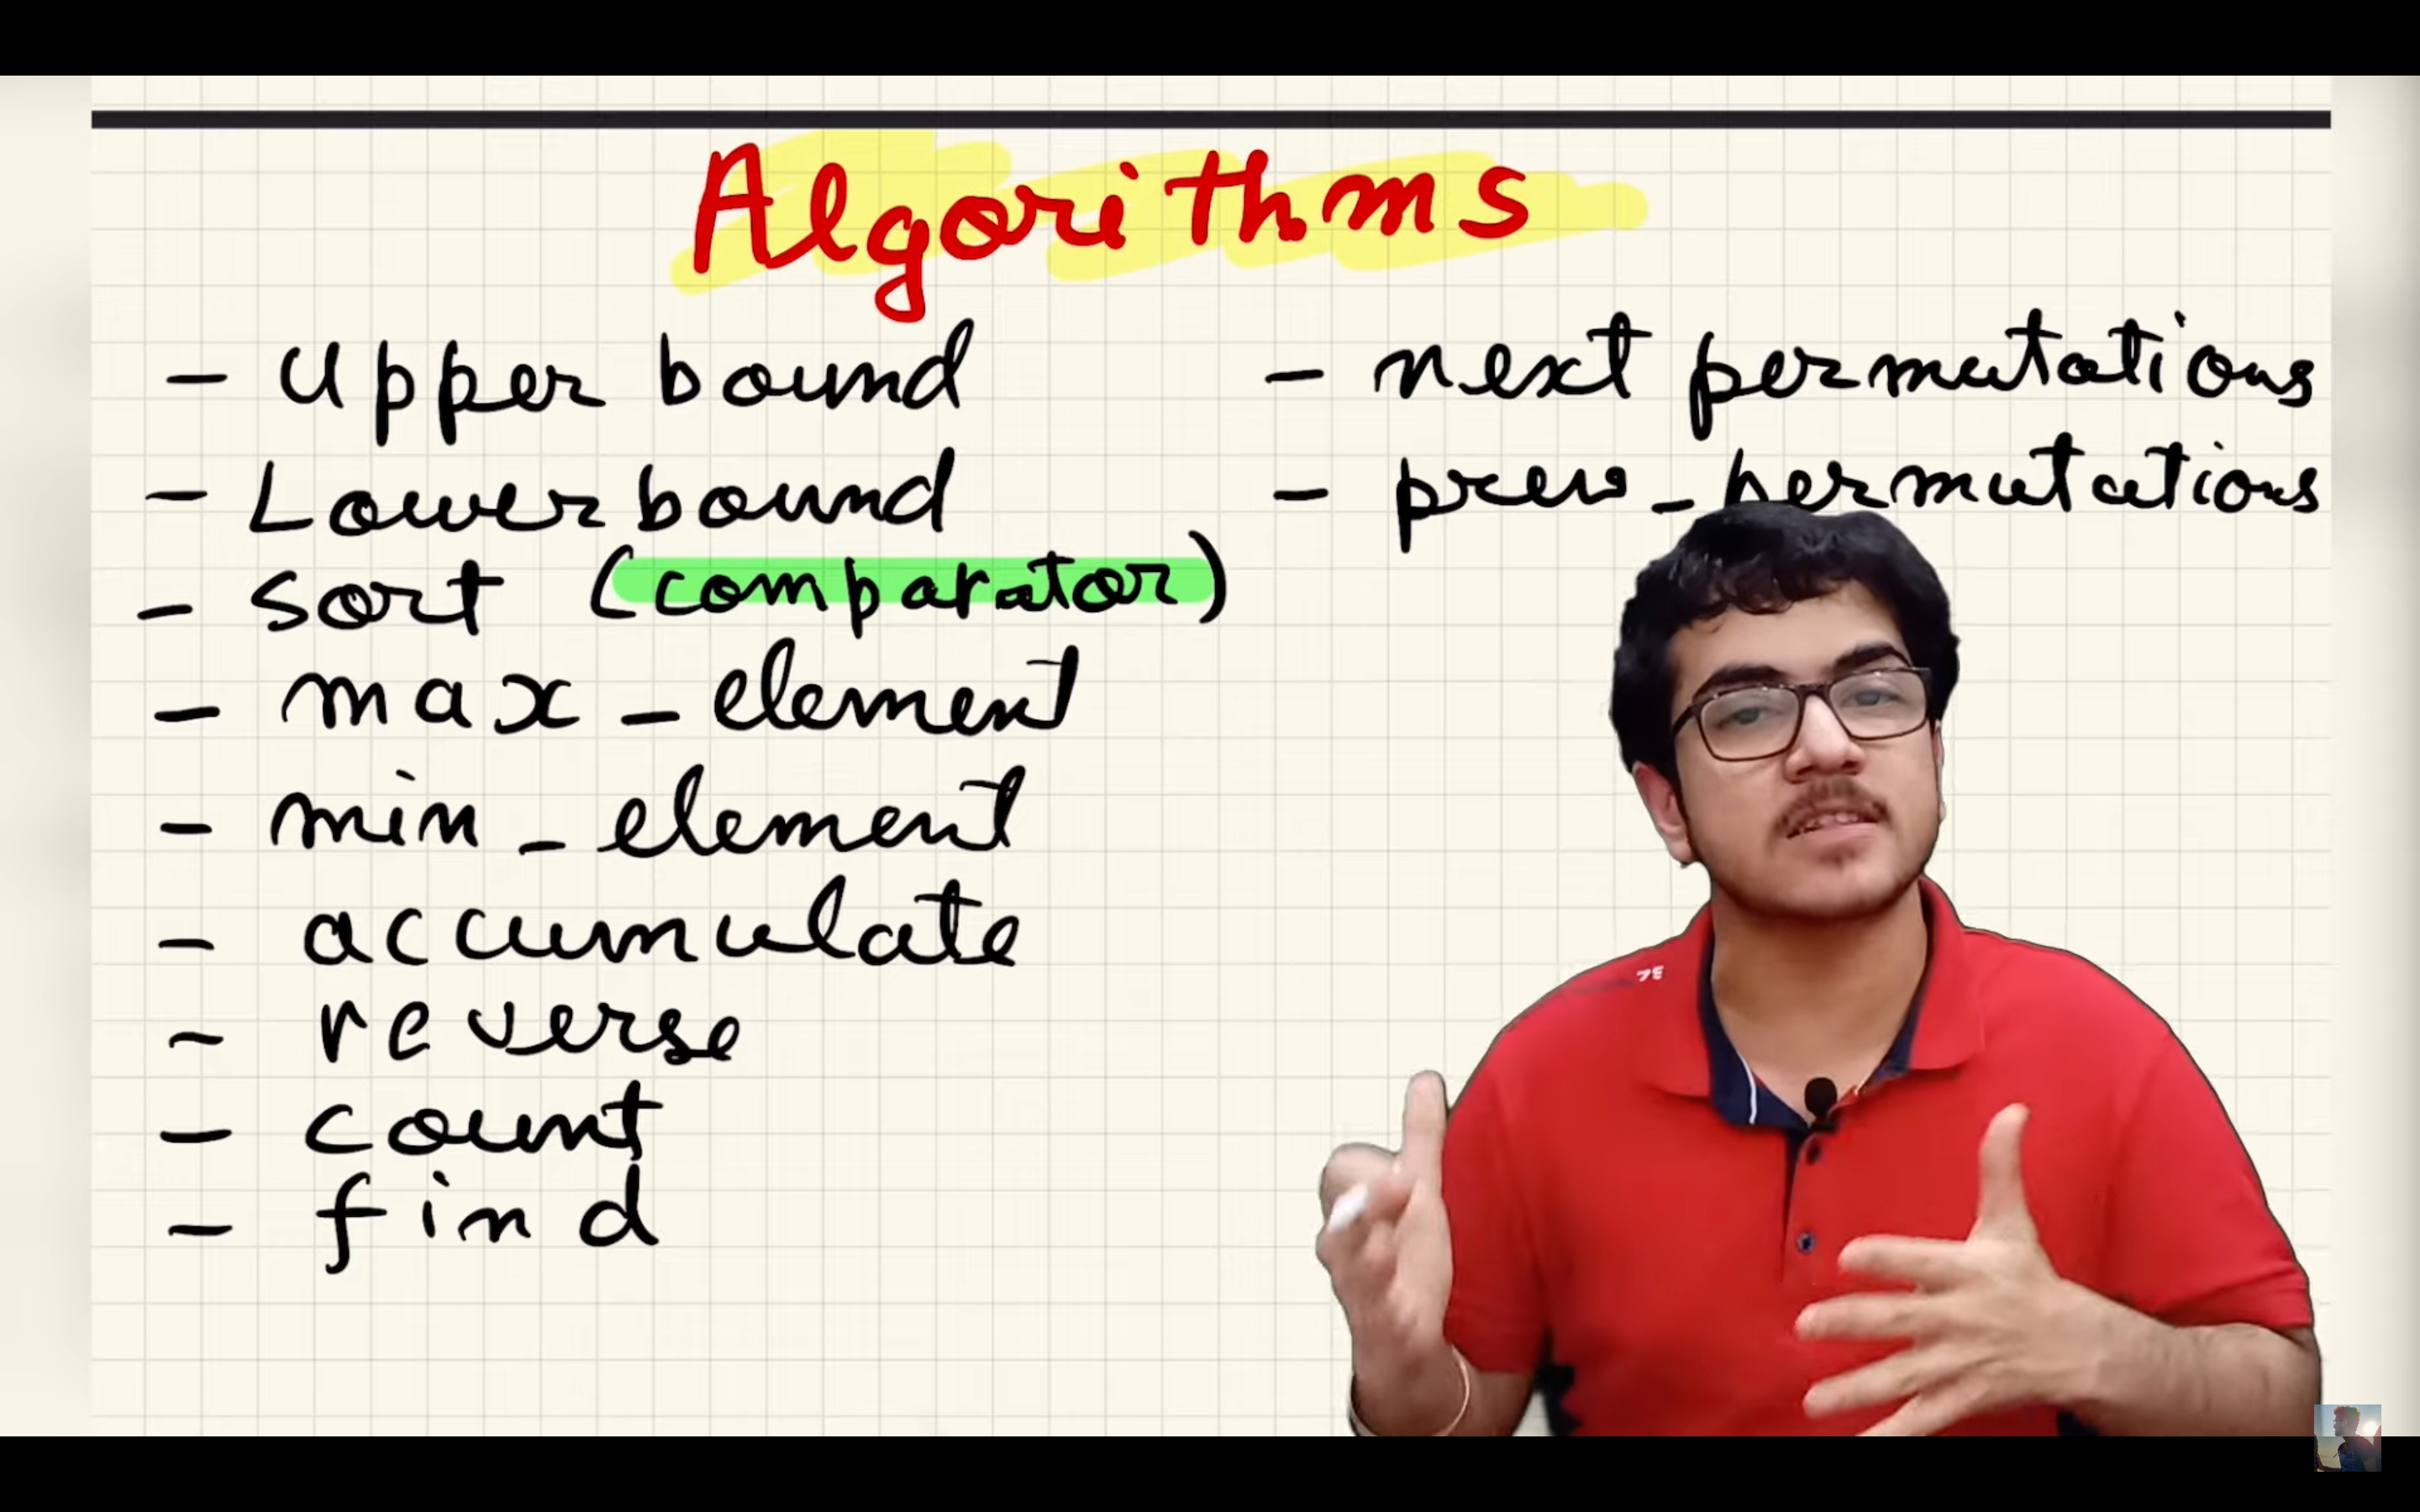 Algorithms
- Upper bound
- Lower bound
- Sort (comparator)
- max_element
- min_element
- accumulate
- reverse
- count
- find
- next permutations
- prev_permutations